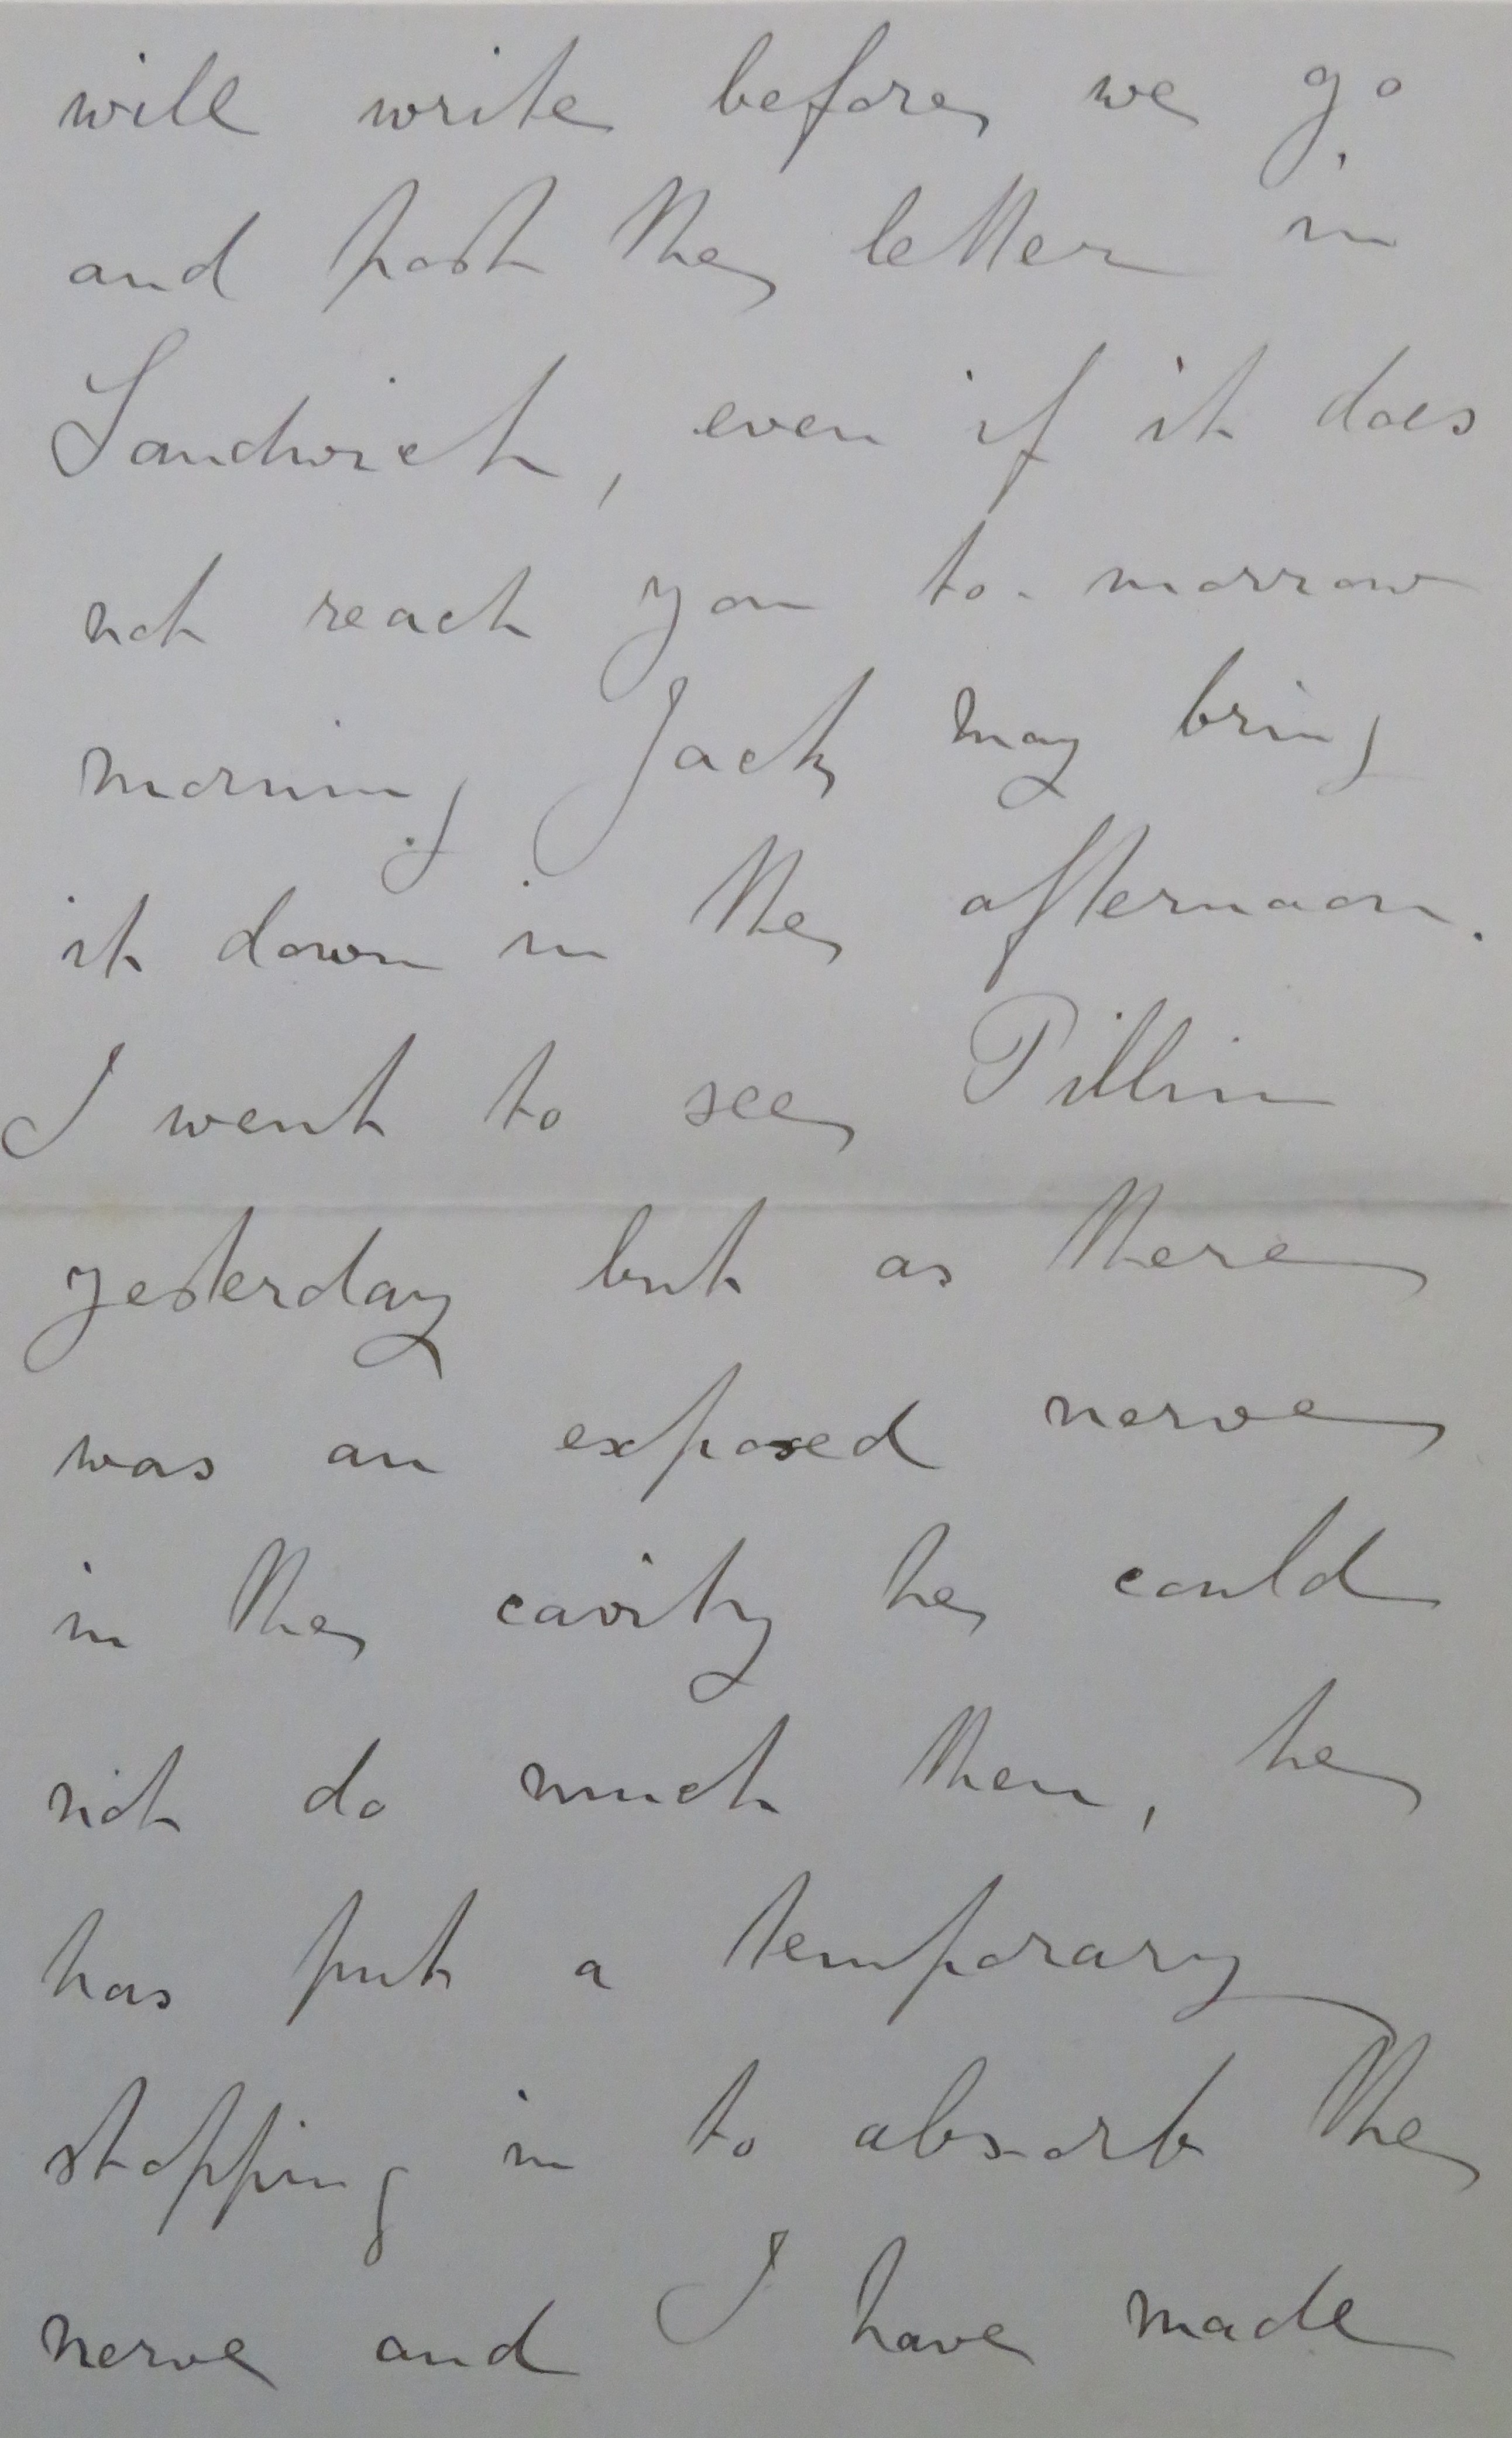 will write before we go
and post the letter in
Sandwich, even if it does
not reach you to-morrow
morning Jack may bring
it down in the afternoon.
I went to see Pillin
yesterday but as there
was an exposed nerve
in the cavity he could
not do much then, he
has put a temporary
stopping in to absorb the
nerve and I have made